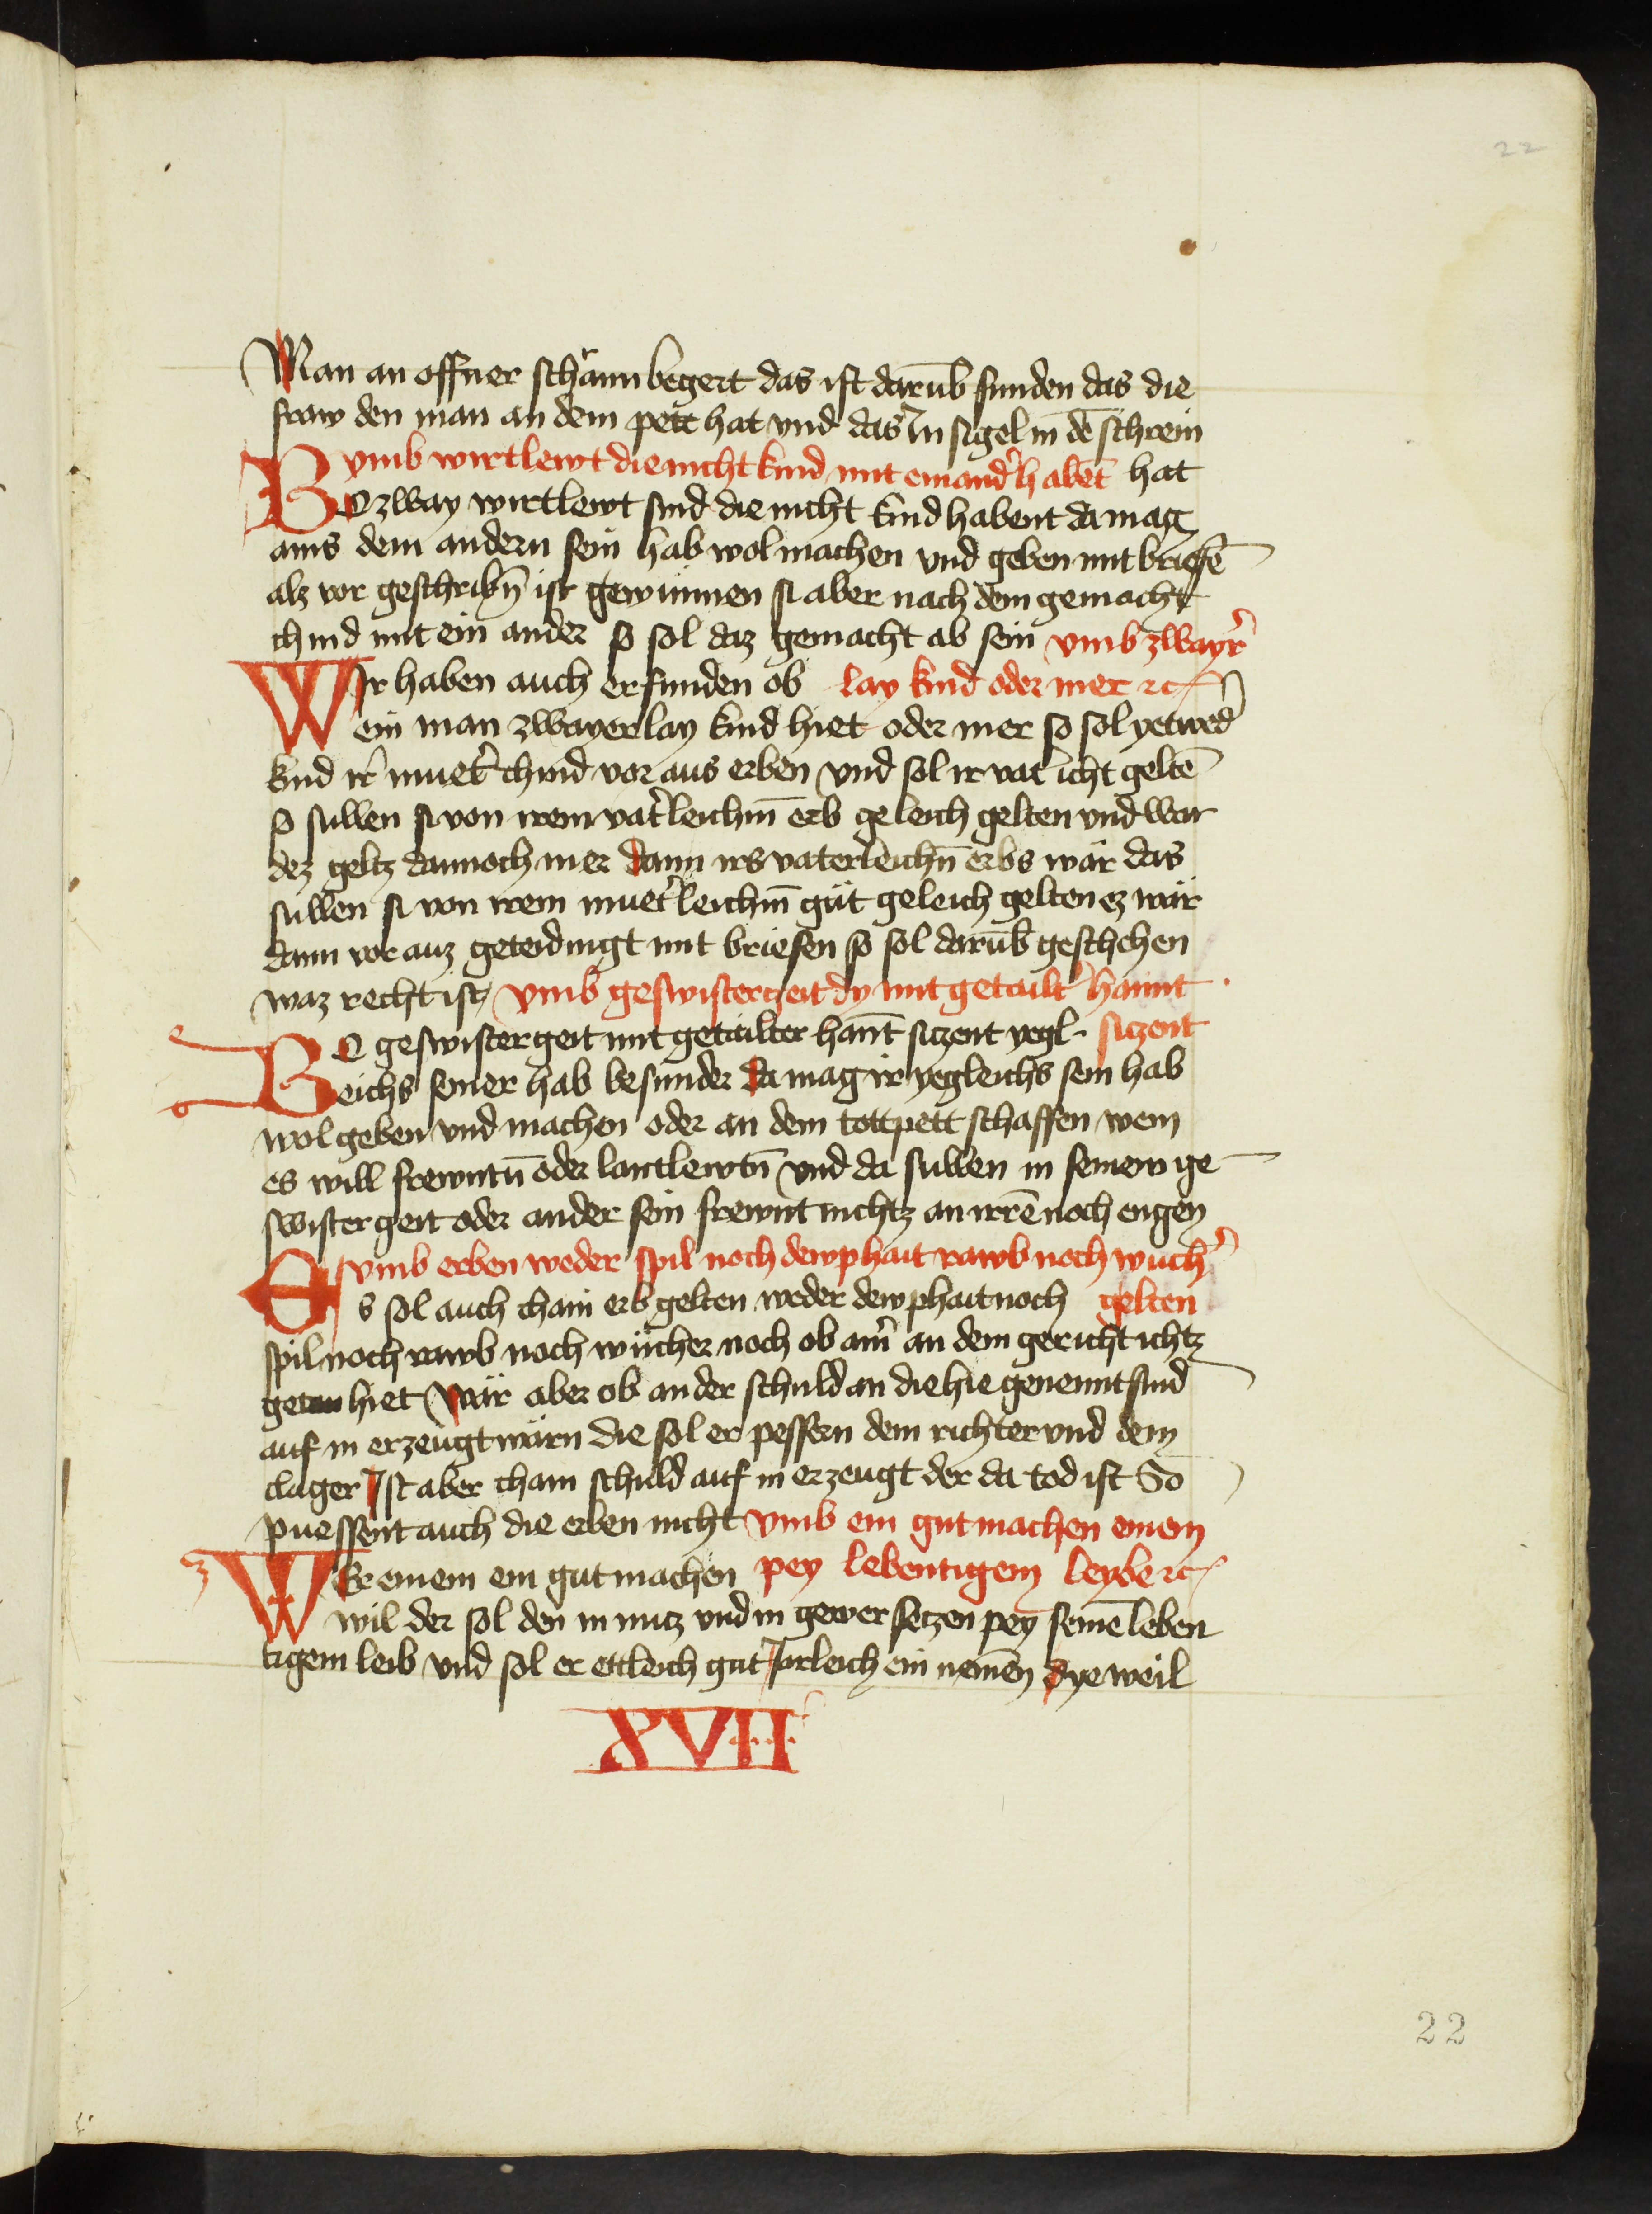 22
Man an offner schrann begert das ist darūb funden das die
fraw den man an dem pett hat vnd das In sigel in dē schrein
vmb wirtlewt die nicht kind mit einand̾ habēt hat
Bo zway wirtlewt sind die nicht kind habent da mag
ains dem andern sein hab wol machen vnd geben mit briefē
alz vor geschribn̄ ist gewinnen si aber nach dem gemacht
chind mit ein ander so sol daz gemacht ab sein vmb zwayr̾
WIr haben auch erfunden ob lay kind oder mer ꝛc
ein man zwayerlay kind hiet oder mer so sol yetwed̾
kind ir̾ muet̾ chind vor aus erben vnd sol ir vat̾ icht geltē
so sullen si von irem vat̾leichm̄ erb geleich gelten vnd wär
dez geltz dannoch mer dann irs vaterleichn̄ erbs wär das
sullen si von irem muet̾leichm̄ güt geleich gelten ez wär
dann vor auz geteidingt mit briefen so sol darūb geschehen
waz recht ist vmb geswistergeit dy mit getailt̾ hannt
Bo geswistergeit mit getailter hant̄ siczent yegl- siczent
leichs seiner hab besunder da mag ir yegleichs sein hab
wol geben vnd machen oder an dem tottpett schaffen wem
es will frewntn̄ oder lantlewtn̄ vnd da sullen in seinew ge
swistergeit oder ander sein frewnt nichtz an irrē noch engen
vmb erben weder spil noch dewphait rawb noch wuch̾
Es sol auch chain erb gelten weder dewphait noch gelten
spil noch rawb noch wücher noch ob am̾ an dem gericht ichtz
getan hiet Wär aber ob an der schuld an die hie genennt sind
auf in erzeugt wärn die sol er pessern dem richter vnd dem
clager Ist aber chain schuld auf in erzeugt der da tod ist So
puessent auch die erben nicht vmb ein gut machen einem
WEr einem ein gut machen pey lebentigem leybe ꝛc
wil der sol den in nucz vnd in gewer seczen pey seinē leben
tigem leib vnd sol er ettleich gut Jarleich ein nemen dye weil
XVII
22